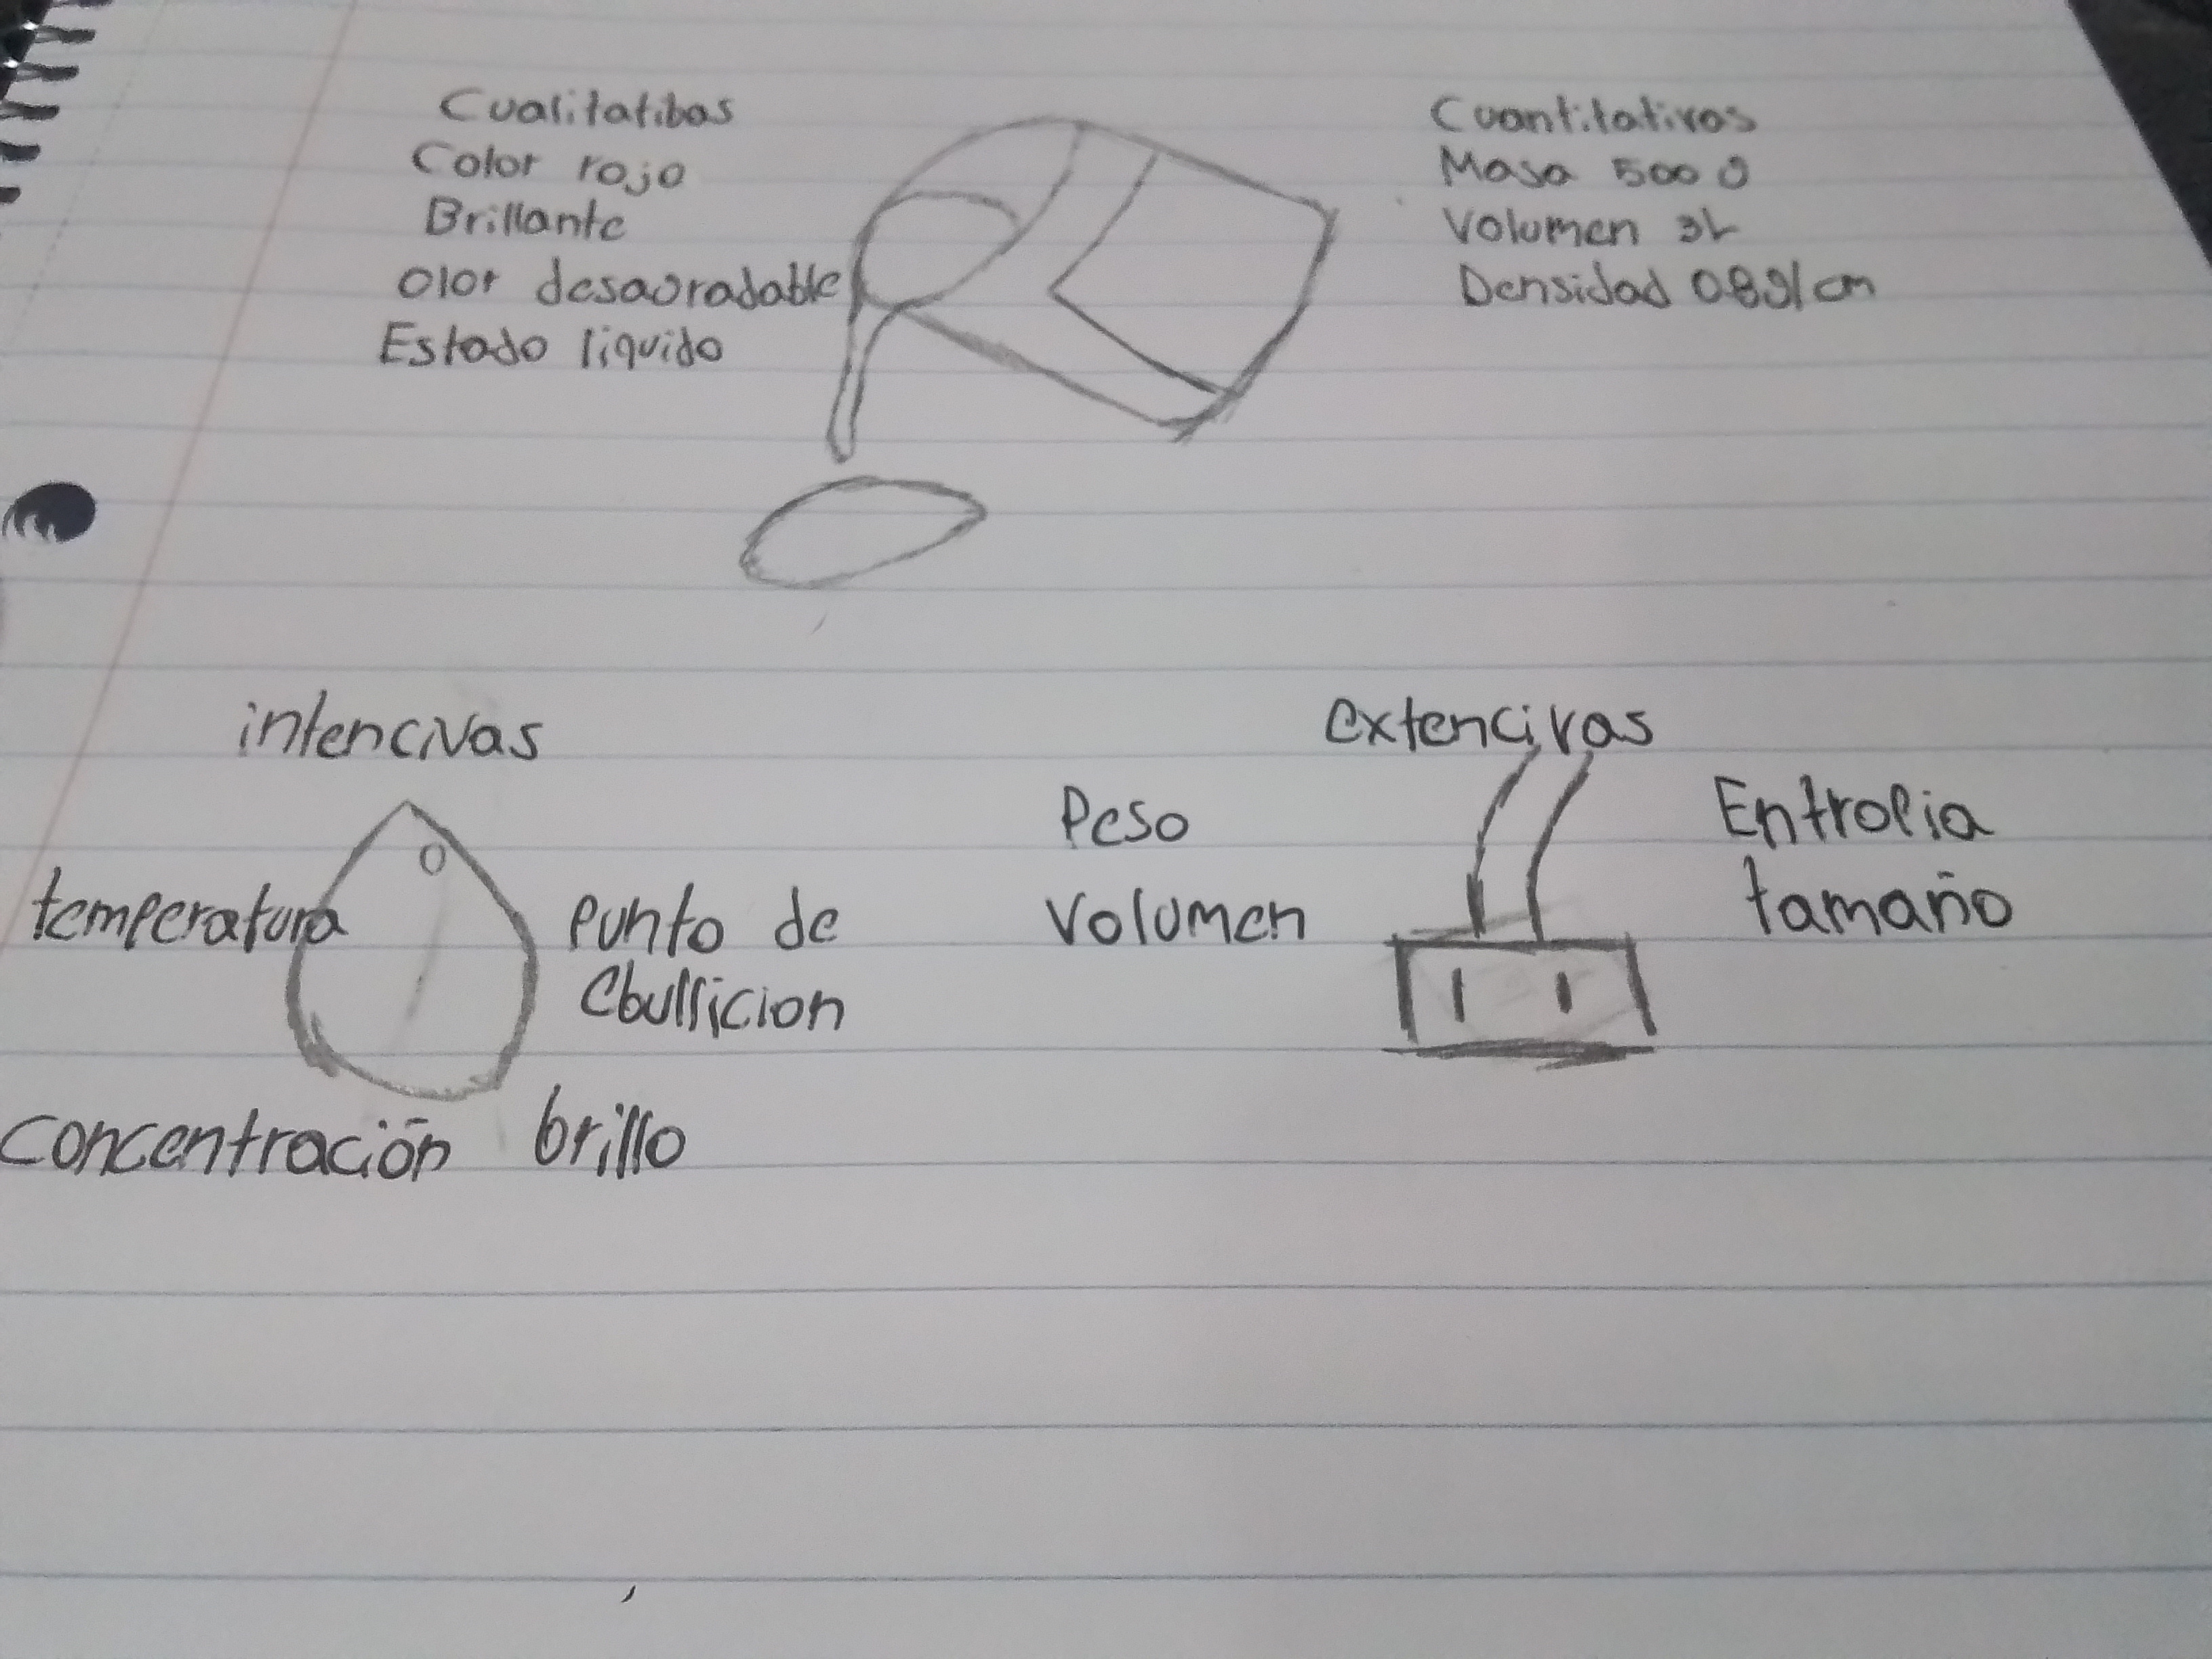 Cualitatibas
Color rojo
Brillante
Olor desagradable
Estado liquido
Cuantitativas
Masa 500 g
Volumen 3L
Densidad 0.8g/cm
intencivas
temperatura
punto de
Ebullicion
concentración brillo
extencivas
Peso
Volumen
Entropia
tamaño